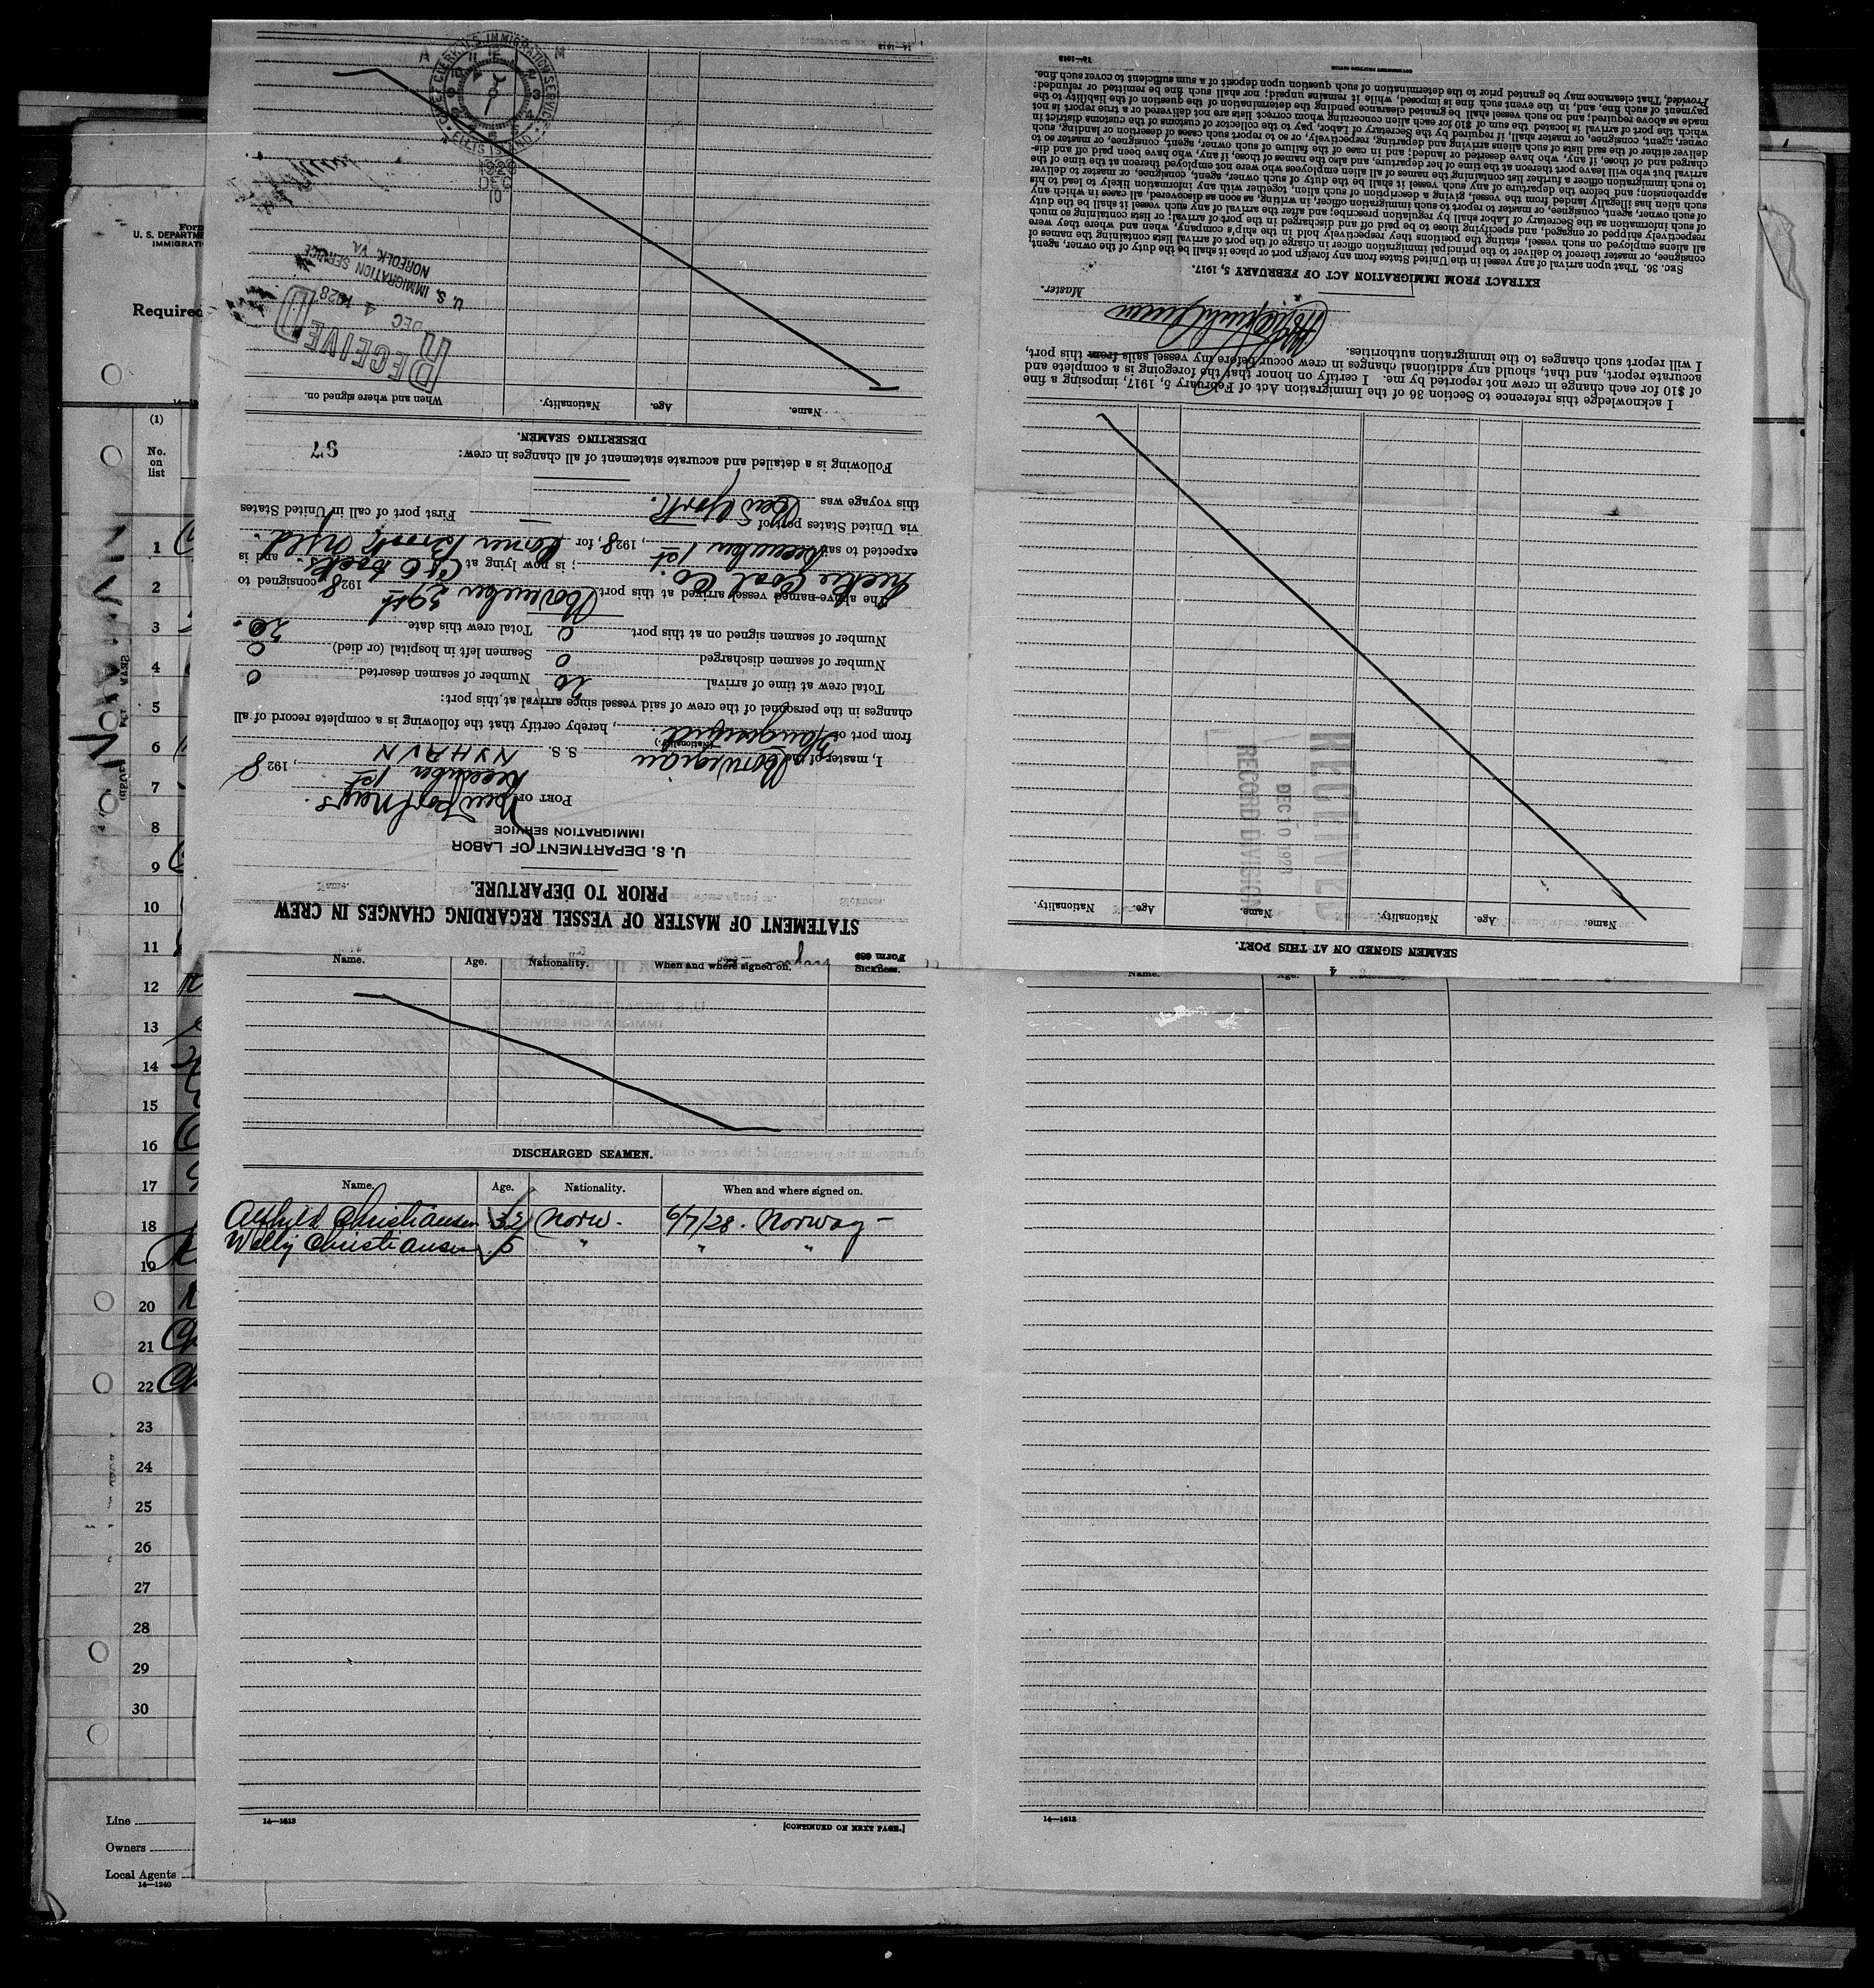 Form 689
STATEMENT OF MASTER OF VESSEL REGARDING CHANGES IN CREW
PRIOR TO DEPARTURE.
U. S. DEPARTMENT OF LABOR
IMMIGRATION SERVICE
PORT OF Newport News.
December 1st, 1928
I, master of the Norwegian S. S. NYHAVN
(Nationality)
from port of Haugesund, hereby certify that the following is a complete record of all
changes in the personnel of the crew of said vessel since arrival at this port:
Total crew at time of arrival 20 Number of seamen deserted 0
Number of seamen discharged 0 Seamen left in hospital (or died) 0
Number of seamen signed on at this port 0 Total crew this date 20.
The above-named vessel arrived at this port November 29th 1928 consigned to
Coal Co. ; is now lying at C & O docks. and is
expected to sail December 1st, 1928, for Corner Brook Nfld.
via United States port of — First port of call in United States
this voyage was New York.
Following is a detailed and accurate statement of all changes in crew:
97
DESERTING SEAMEN.
Name. Age. Nationality. When and where signed on.
RECEIVED
DEC 4 1928
U. S. IMMIGRATION SERVICE
NORFOLK, VA.
CHIEF CLERK U. S. IMMIGRATION SERVICE
ELLIS ISLAND
A M
1928
DEC
10
14—1613
SEAMEN SIGNED ON AT THIS PORT.
Name. Age. Nationality. Name. Age. Nationality.
RECEIVED
DEC 10 1928
RECORD DIVISION
I acknowledge this reference to Section 36 of the Immigration Act of February 5, 1917, imposing a fine
of $10 for each change in crew not reported by me. I certify on honor that the foregoing is a complete and
accurate report, and that, should any additional changes in crew occur before my vessel sails from this port,
I will report such changes to the immigration authorities.
Master.
EXTRACT FROM IMMIGRATION ACT OF FEBRUARY 5, 1917.
SEC. 36. That upon arrival of any vessel in the United States from any foreign port or place it shall be the duty of the owner, agent,
consignee, or master thereof to deliver to the principal immigration officer in charge of the port of arrival lists containing the names of
all aliens employed on such vessel, stating the positions they respectively hold in the ship's company, when and where they were
respectively shipped or engaged, and specifying those to be paid off and discharged in the port of arrival; or lists containing so much
of such information as the Secretary of Labor shall by regulation prescribe; and after the arrival of any such vessel it shall be the duty
of such owner, agent, consignee, or master to report to such immigration officer, in writing, as soon as discovered, all cases in which any
such alien has illegally landed from the vessel, giving a description of such alien, together with any information likely to lead to his
apprehension; and before the departure of any such vessel it shall be the duty of such owner, agent, consignee, or master to deliver
to such immigration officer a further list containing the names of all alien employees who were not employed thereon at the time of the
arrival but who will leave port thereon at the time of her departure, and also the names of those, if any, who have been paid off and dis-
charged and of those, if any, who have deserted or landed; and in case of the failure of such owner, agent, consignee, or master to
deliver either of the said lists of such aliens arriving and departing, respectively, or so to report such cases of desertion or landing, such
owner, agent, consignee, or master shall, if required by the Secretary of Labor, pay to the collector of customs of the customs district in
which the port of arrival is located the sum of $10 for each alien concerning whom correct lists are not delivered or a true report is not
made as above required; and no such vessel shall be granted clearance pending the determination of the question of the liability to the
payment of such fine, and, in the event such fine is imposed, while it remains unpaid; nor shall such fine be remitted or refunded:
Provided, That clearance may be granted prior to the determination of such question upon deposit of a sum sufficient to cover such fine.
14—1613
Name. Age. Nationality. When and where signed on. Sickness.
DISCHARGED SEAMEN.
Name. Age. Nationality. When and where signed on.
Alfhild Christiansen 32 Norw. 6/7/28. Norway —
Willy Christiansen 5 " " "
14—1613 [CONTINUED ON NEXT PAGE.]
4
Name. Age.
14—1613
Form
U. S. DEPARTME
IMMIGRATI
Required
(1)
No.
on
list
1
2
3
4
5
6
7
8
9
10
11
12
13
14
15
16
17
18
19
20
21
22
23
24
25
26
27
28
29
30
Line
Owners
Local Agents
14—1240